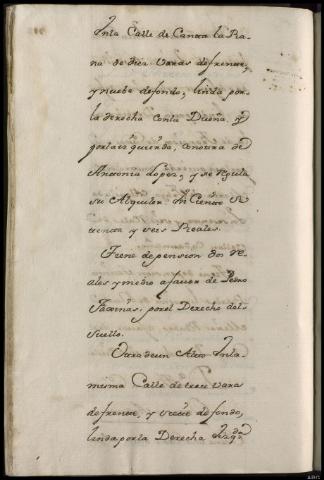 Inla Calle de Canta la Ra-
na de diez varas de frente,
y nuebe de fondo, linda por
la derecha conla Dueña, y
por la izquierda, con otra de
Antonia Lopez, y se regula
su Alquiler en Ciento Se
tenta y seis Reales.
Tiene de pension dos re-
ales y medio a favor de Pedro
por el Derecho del
suello.
Otra de un Alto Inla
misma Calle de trece varas
de frente, y trece de fondo,
linda por la Derecha